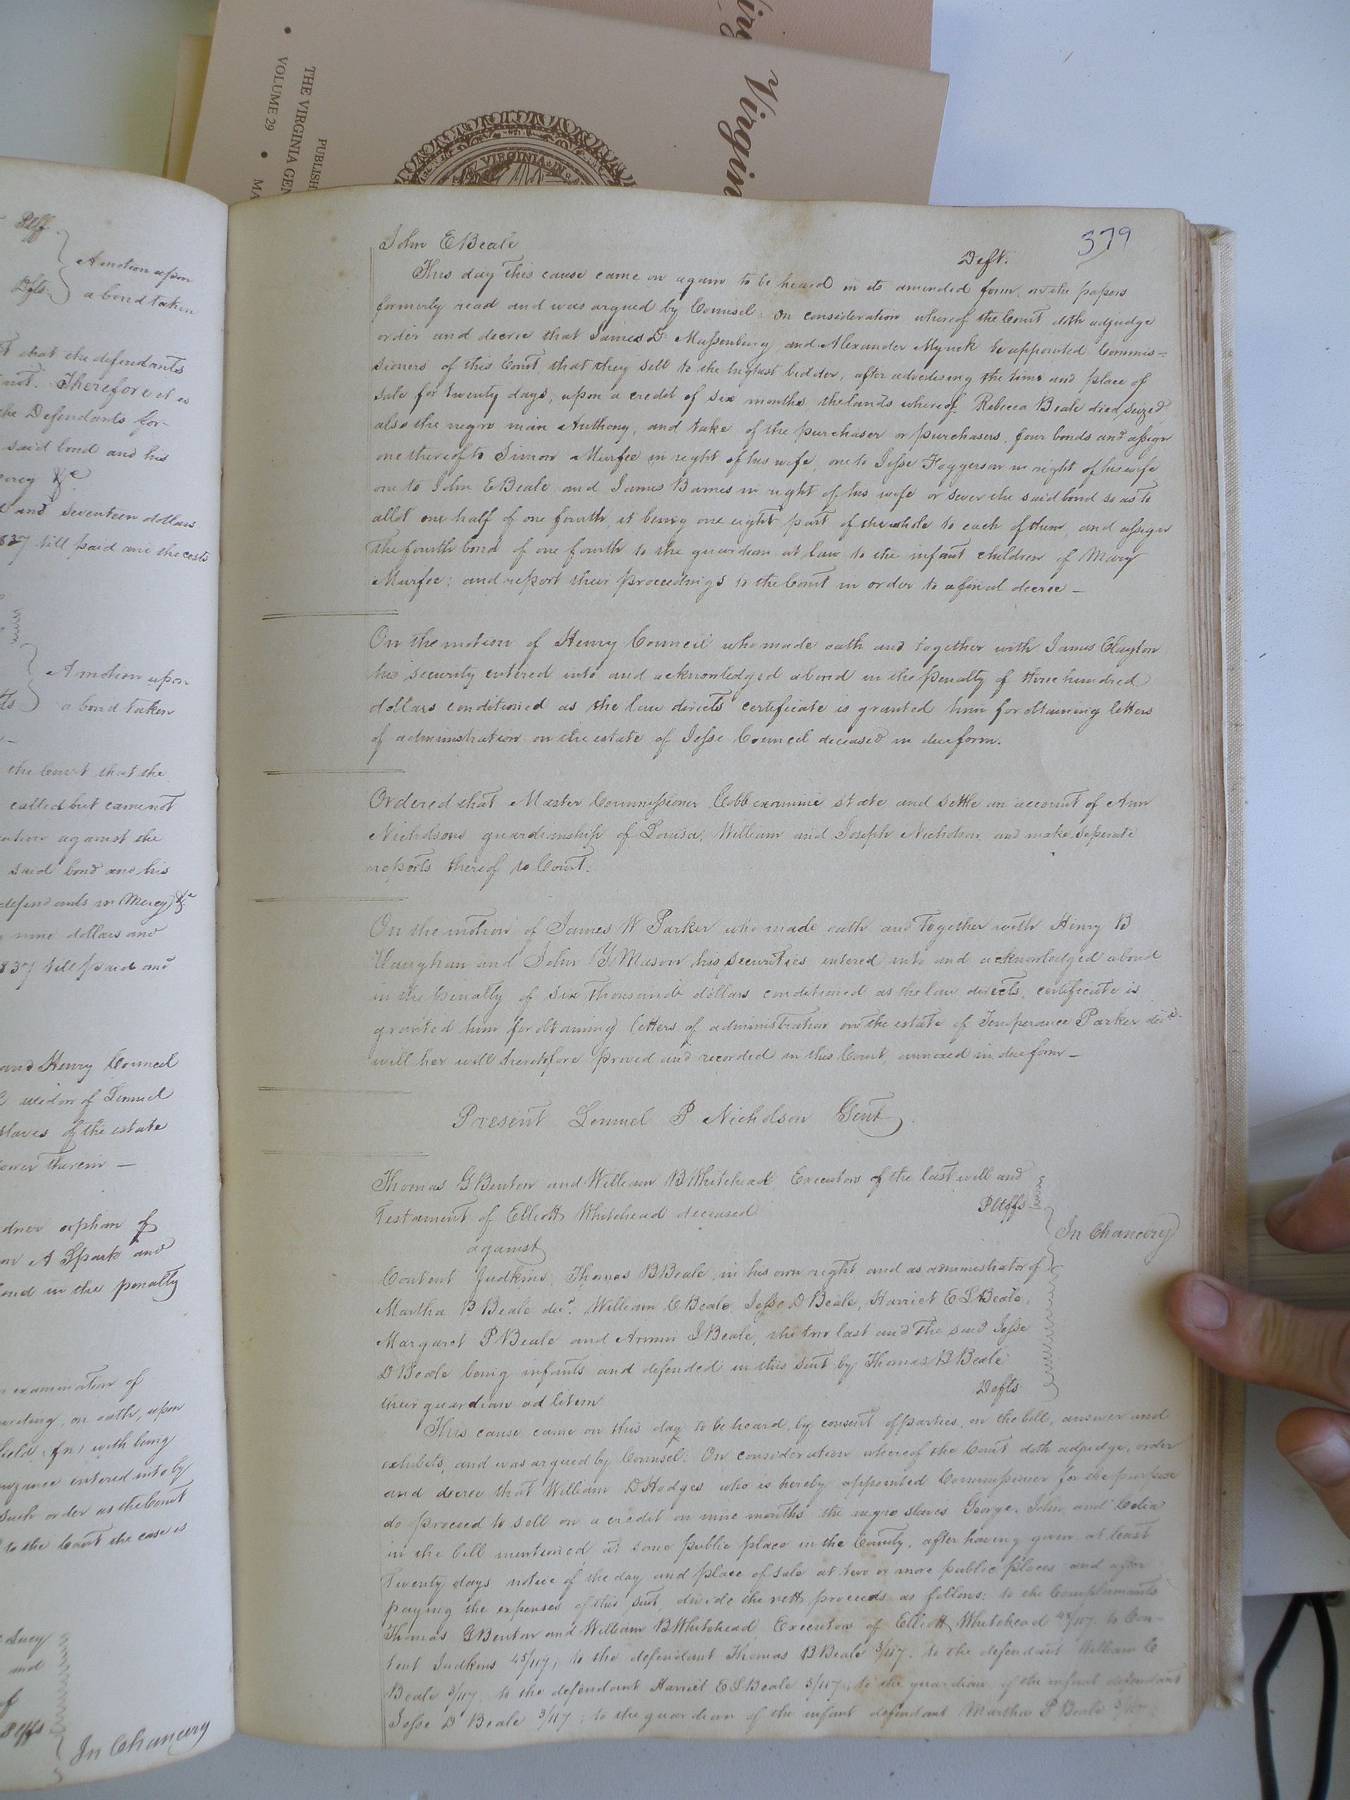 Virgin
THE VIRGINIA GEN
VOLUME 29
PUBLISH
MA
VIRGINIA
379
John E Beale
Deft.
This day this cause came on again to be heard in its amended form, on the papers
formerly read and was argued by Counsel. On consideration whereof the Court doth adjudge
order and decree that James D Massenburg and Alexander Myrick be appointed Commis=
sioners of this Court, that they sell to the highest bidder, after advertising the time and place of
sale for twenty days, upon a credit of six months the lands whereof Rebecca Beale died seized,
also the negro man Anthony, and take of the purchaser or purchasers, four bonds and assign
one thereof to Simon Murfee in right of his wife, one to Jesse Foggerson in right of his wife
one to John E Beale and James Barnes in right of his wife or sever the said bond so as to
allot one half of one fourth, it being one eight part of the whole to each of them, and assign
the fourth bond of one fourth to the guardian at law to the infant children of Mary
Murfee; and report their proceedings to the Court in order to a final decree —
On the motion of Henry Council who made oath and together with James Clayton
his security entered into and acknowledged a bond in the penalty of three hundred
dollars conditioned as the law directs certificate is granted him for obtaining letters
of administration on the estate of Jesse Council deceased in due form.
Ordered that Master Commissioner Cobb examine state and settle an account of Ann
Nicholsons guardianship of Louisa, William and Joseph Nicholson and make seperate
reports thereof to Court.
On the motion of James W Parker who made oath and together with Henry B
Vaughan and John Y Mason his securities entered into and acknowledged a bond
in the penalty of six thousand dollars conditioned as the law directs, certificate is
granted him for obtaining letters of administration on the estate of Temperance Parker decd.
will her will theretofore proved and recorded in this Court, annexed in due form —
Present Lemuel P Nicholson Gent.
Thomas G Benton and William B Whitehead Executors of the last will and
Testament of Elliott Whitehead deceased
Pltffs
against
In Chancery
Content Judkins, Thomas B Beale in his own right and as administrator of
Martha B Beale decd. William C Beale, Jesse D Beale, Harriet E S Beale,
Margaret P Beale and Ammi J Beale, the two last and the said Jesse
D Beale being infants and defended in this suit by Thomas B Beale
their guardian ad litem
Defts
This cause came on this day to be heard, by consent of parties, on the bill, answer and
exhibits, and was argued by Counsel: On consideration whereof the Court doth adjudge, order
and decree that William D Hodges who is hereby appointed Commissioner for the purpose
do proceed to sell on a credit on nine months the negro slaves George, John, and Celia
in the bill mentioned at some public place in the County, after having given at least
twenty days notice of the day and place of sale at two or more public places and after
paying the expenses of this suit divide the nett proceeds as follows: to the Complainants
Thomas G Benton and William B Whitehead Executors of Elliott Whitehead 48/117, to Con-
tent Judkins 48/117, to the defendant Thomas B Beale 3/117, to the defendant William C
Beale 3/117, to the defendant Harriet E S Beale 3/117, to the guardian of the infant defendant
Jesse D Beale 3/117; to the guardian of the infant defendant Martha P Beale 3/117
Plff
Defts.
A motion upon
a bond taken
that the defendants
not. Therefore it is
the Defendants for-
said bond and his
mercy &c
and seventeen dollars
837 till paid and the costs
A motion upon
a bond taken
the Court that the
called but came not
against the
said bond and his
defendants in Mercy &c
nine dollars and
837 till paid and
and Henry Council
widow of Lemuel
slaves of the estate
dower therein —
orphan of
A Spark and
bond in the penalty
examination of
on oath, upon
with being
entered into by
such order as the Court
to the Court the case is
Lucy
and
of
Plffs
In Chancery